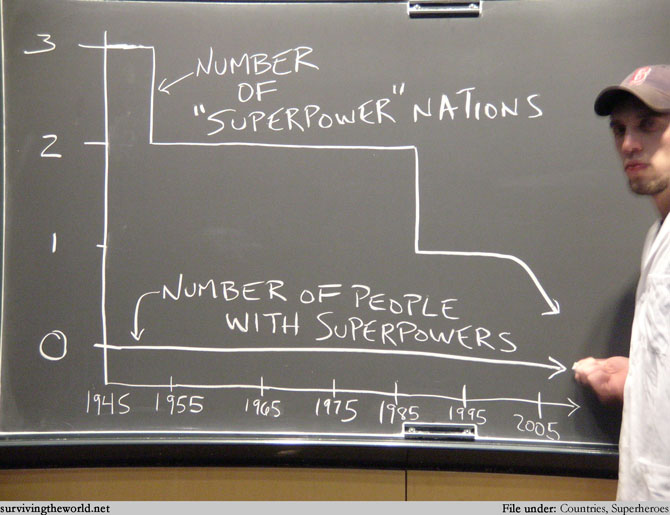 3
NUMBER
OF
"SUPERPOWER" NATIONS
2
1
NUMBER OF PEOPLE
WITH SUPERPOWERS
0
1945 1955 1965 1975 1985 1995 2005
survivingtheworld.net
File under: Countries, Superheroes